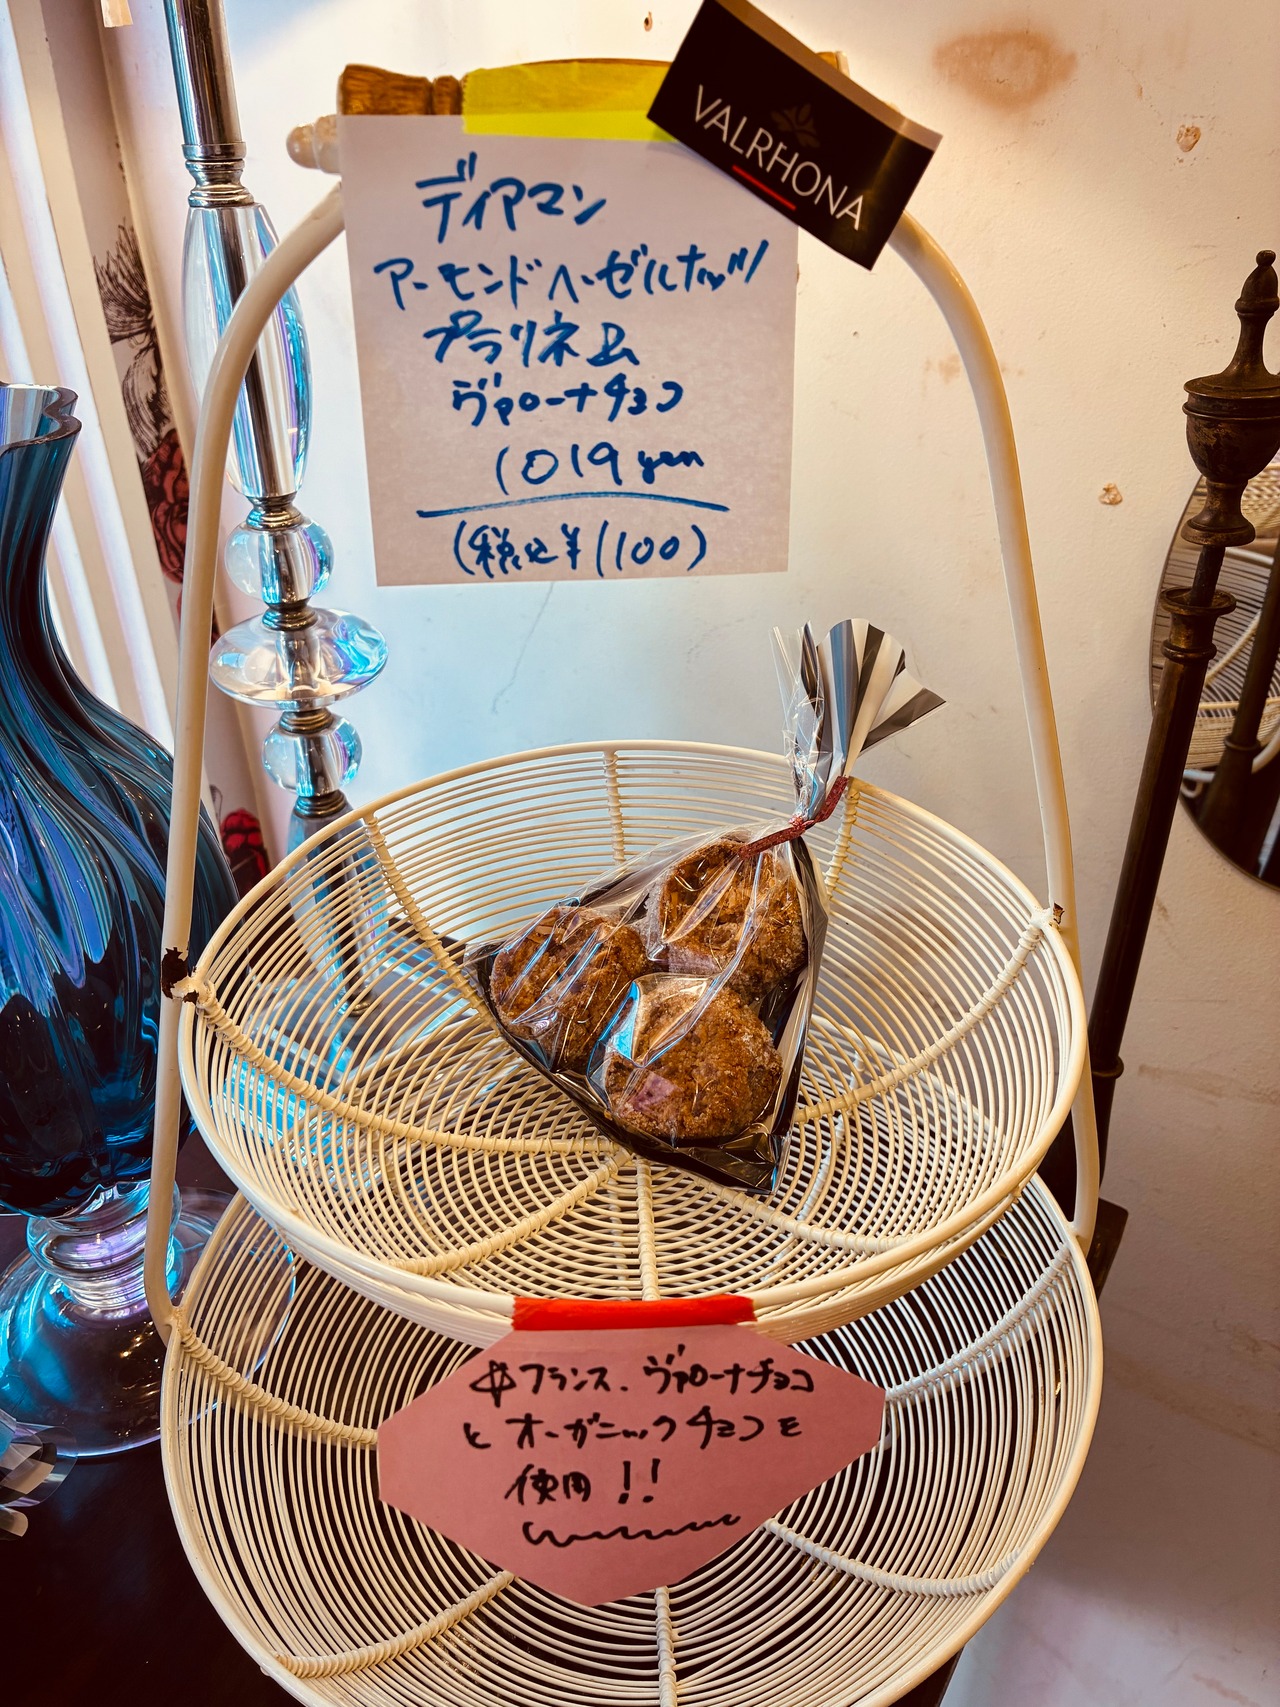 VALRHONA
ディアマン
アーモンドヘーゼルナッツ
プラリネ
ヴァローナチョコ
1019 yen
(税込¥1100)
フランス、ヴァローナチョコ
とオーガニックチョコを
使用!!